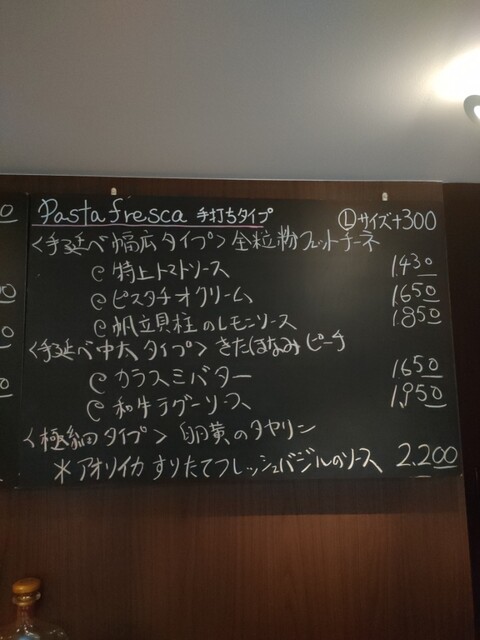 Pasta fresca 手打ちタイプ Ⓛサイズ+300
<手延べ幅広タイプ> 全粒粉フェットチーネ
特上トマトソース 1,430
ピスタチオクリーム 1,650
帆立貝柱のレモンソース 1,850
<手延べ中太タイプ> きたほなみピーチ
カラスミバター 1,650
和牛ラグーソース 1,950
<極細タイプ> 卵黄のタヤリン
*アオリイカ すりたてフレッシュバジルのソース 2,200